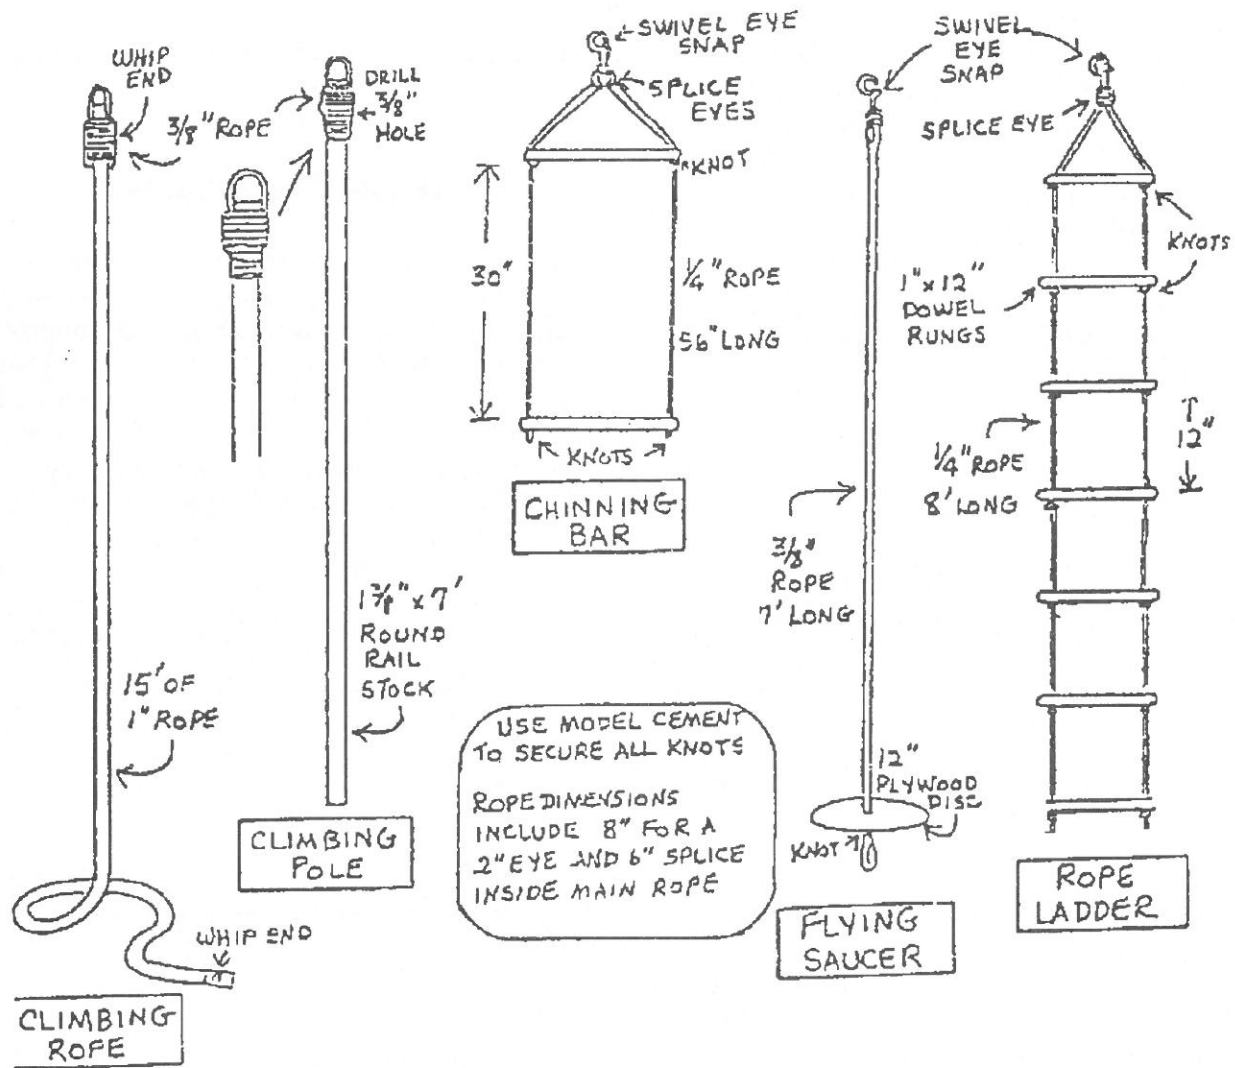 WHIP
END
3/8" ROPE
DRILL
3/8"
HOLE
15' OF
1" ROPE
WHIP END
CLIMBING
ROPE
1 3/8" x 7'
ROUND
RAIL
STOCK
CLIMBING
POLE
SWIVEL EYE
SNAP
SPLICE
EYES
KNOT
30"
1/4" ROPE
56" LONG
KNOTS
CHINNING
BAR
USE MODEL CEMENT
TO SECURE ALL KNOTS
ROPE DIMENSIONS
INCLUDE 8" FOR A
2" EYE AND 6" SPLICE
INSIDE MAIN ROPE
SWIVEL
EYE
SNAP
3/8"
ROPE
7' LONG
12"
PLYWOOD
DISC
KNOT
FLYING
SAUCER
SPLICE EYE
KNOTS
1" x 12"
DOWEL
RUNGS
1/4" ROPE
8' LONG
12"
ROPE
LADDER